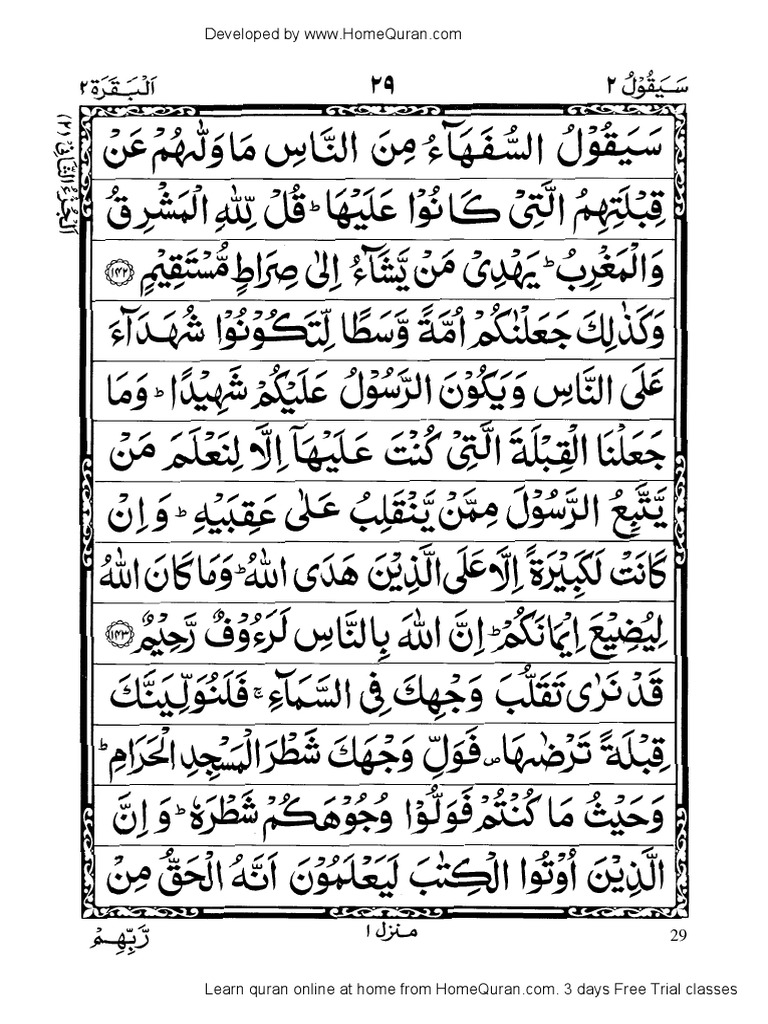 Developed by www.HomeQuran.com
سَيَقُوْلُ ٢ ٢٩ اَلْبَقَرَة ٢
اَلْجُزْءُ الثَّانِيْ (٢)
سَيَقُوْلُ السُّفَهَآءُ مِنَ النَّاسِ مَا وَلّٰىهُمْ عَنْ
قِبْلَتِهِمُ الَّتِيْ كَانُوْا عَلَيْهَا ؕ قُلْ لِّلّٰهِ الْمَشْرِقُ
وَالْمَغْرِبُ ؕ يَهْدِيْ مَنْ يَّشَآءُ اِلٰى صِرَاطٍ مُّسْتَقِيْمٍ ١٤٢
وَكَذٰلِكَ جَعَلْنٰكُمْ اُمَّةً وَّسَطًا لِّتَكُوْنُوْا شُهَدَآءَ
عَلَى النَّاسِ وَيَكُوْنَ الرَّسُوْلُ عَلَيْكُمْ شَهِيْدًا ؕ وَمَا
جَعَلْنَا الْقِبْلَةَ الَّتِيْ كُنْتَ عَلَيْهَآ اِلَّا لِنَعْلَمَ مَنْ
يَّتَّبِعُ الرَّسُوْلَ مِمَّنْ يَّنْقَلِبُ عَلٰى عَقِبَيْهِ ؕ وَاِنْ
كَانَتْ لَكَبِيْرَةً اِلَّا عَلَى الَّذِيْنَ هَدَى اللّٰهُ ؕ وَمَا كَانَ اللّٰهُ
لِيُضِيْعَ اِيْمَانَكُمْ ؕ اِنَّ اللّٰهَ بِالنَّاسِ لَرَءُوْفٌ رَّحِيْمٌ ١٤٣
قَدْ نَرٰى تَقَلُّبَ وَجْهِكَ فِي السَّمَآءِ ۚ فَلَنُوَلِّيَنَّكَ
قِبْلَةً تَرْضٰىهَا ۪ فَوَلِّ وَجْهَكَ شَطْرَ الْمَسْجِدِ الْحَرَامِ ؕ
وَحَيْثُ مَا كُنْتُمْ فَوَلُّوْا وُجُوْهَكُمْ شَطْرَهٗ ؕ وَاِنَّ
الَّذِيْنَ اُوْتُوا الْكِتٰبَ لَيَعْلَمُوْنَ اَنَّهُ الْحَقُّ مِنْ
29 منزل ١ رَّبِّهِمْ
Learn quran online at home from HomeQuran.com. 3 days Free Trial classes